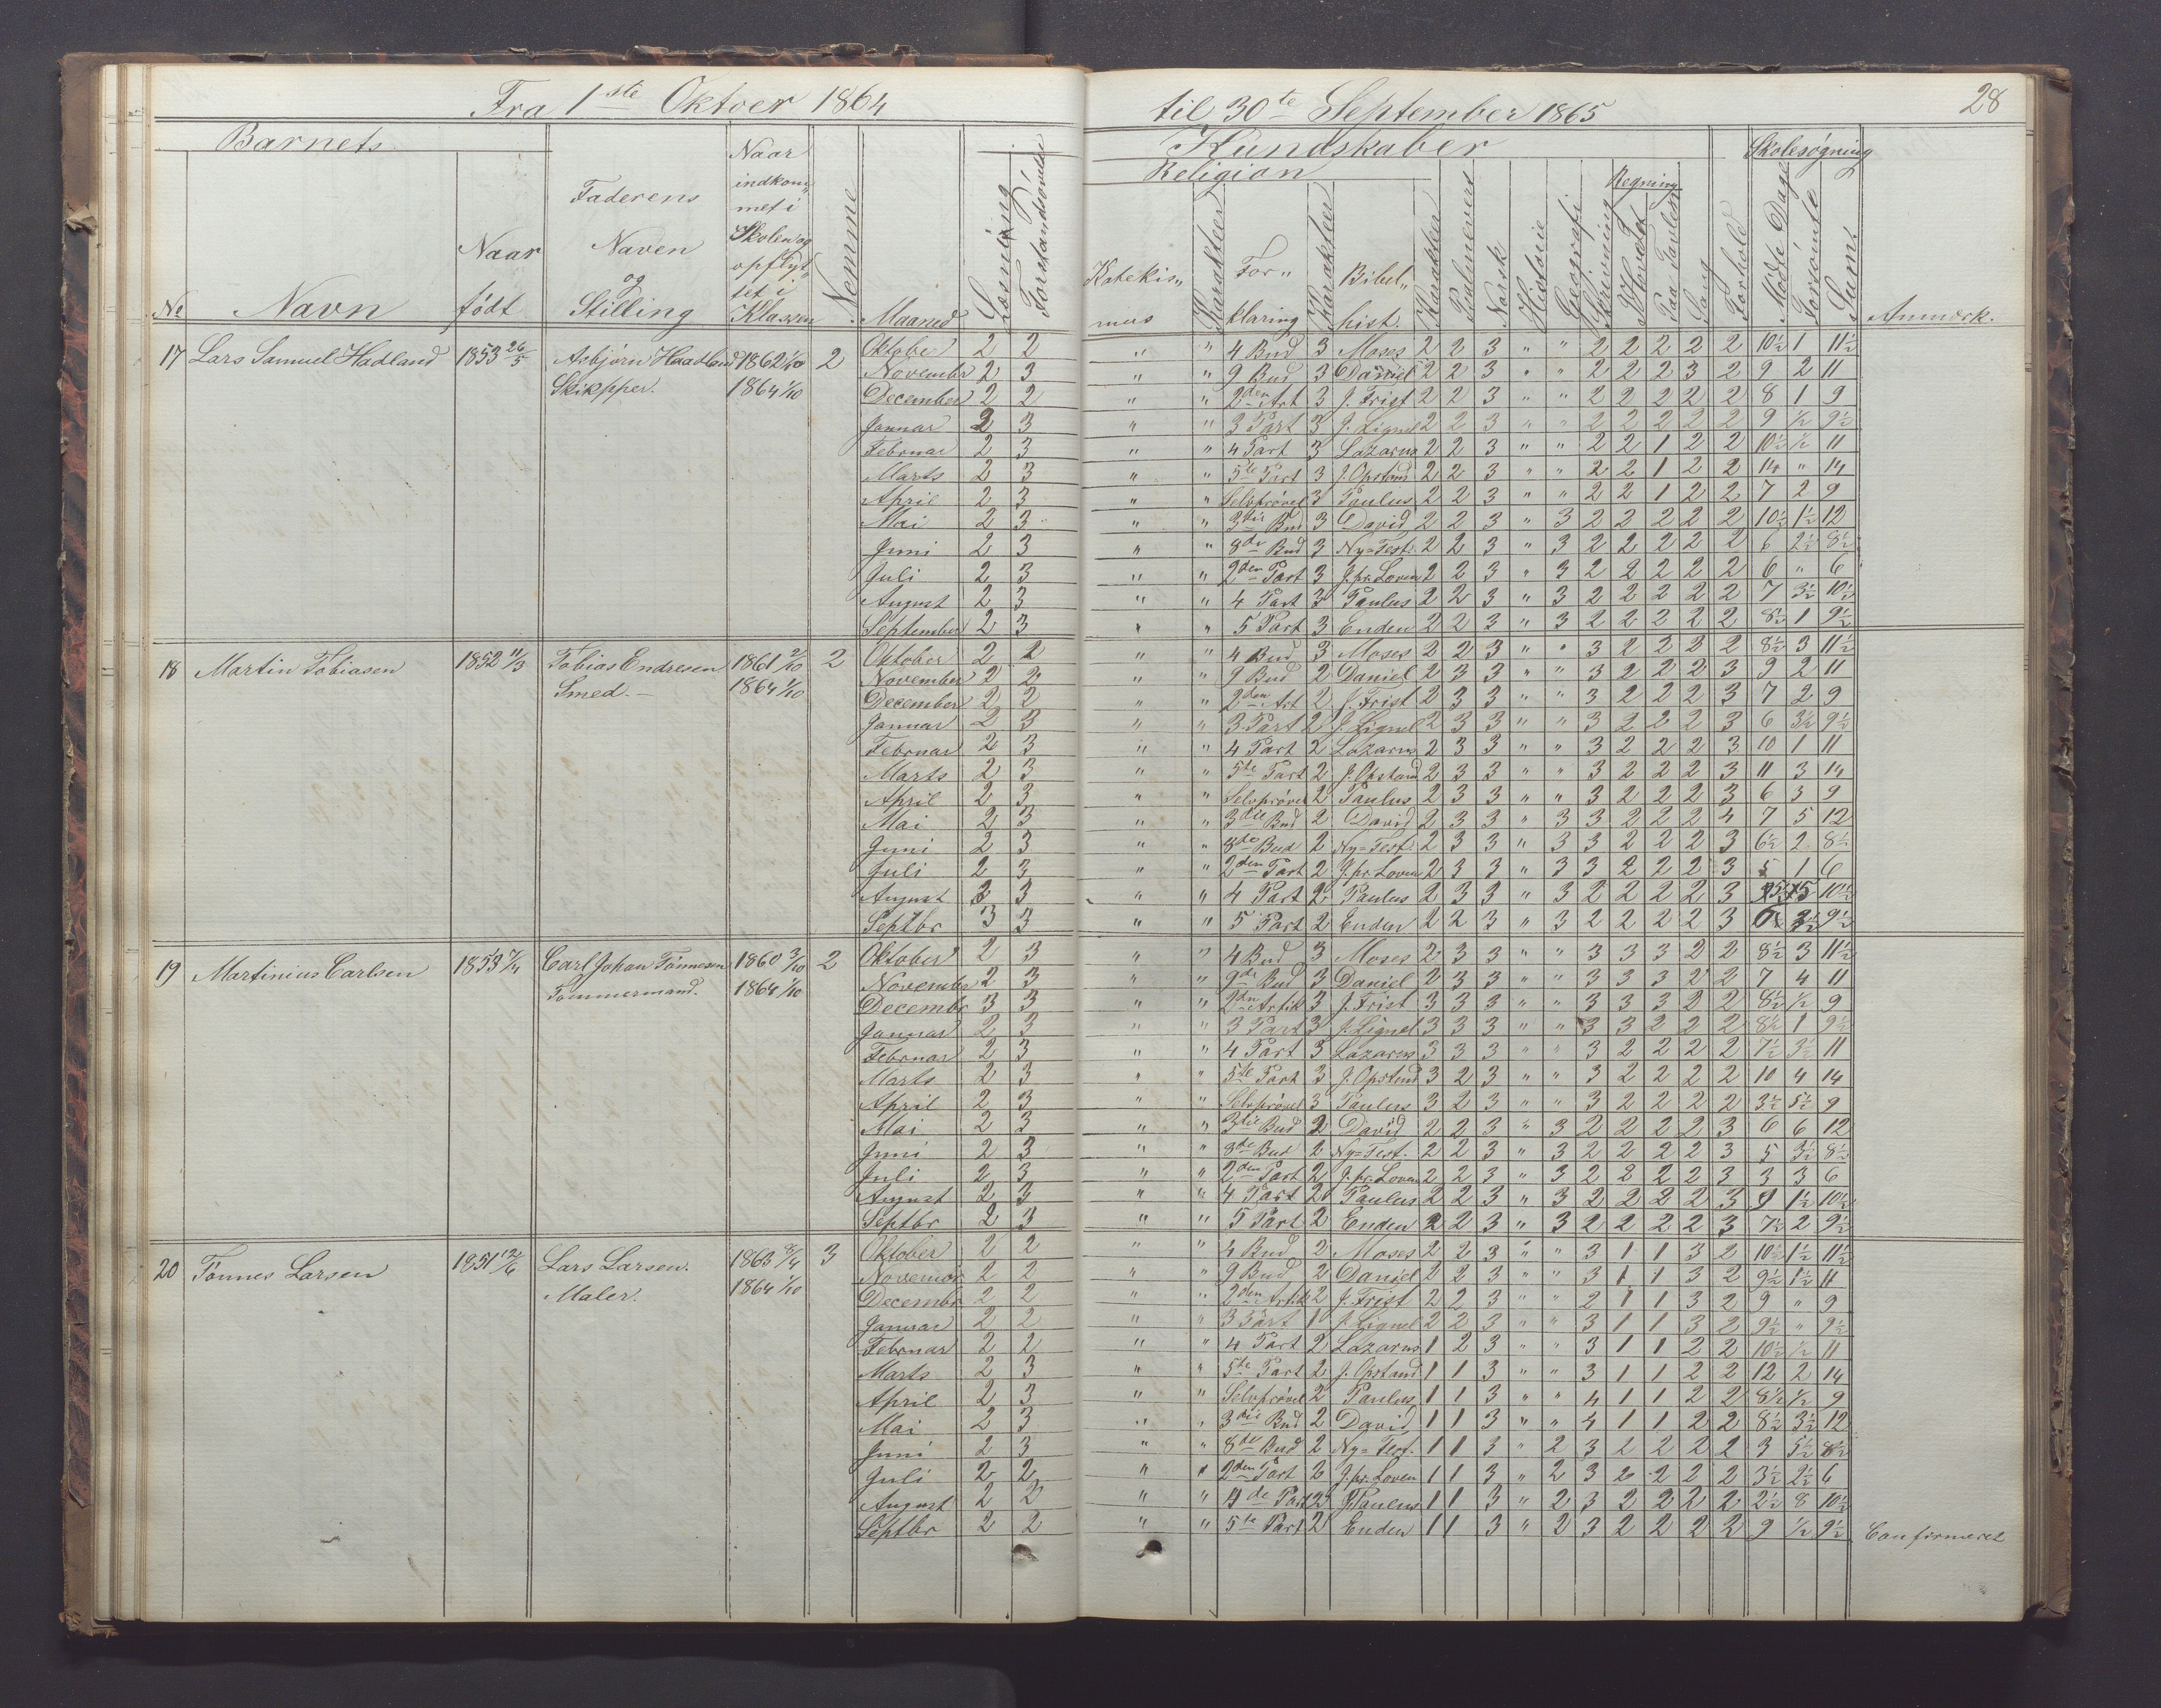 Fra 1ste Oktoer 1864 til 30te September 1865 28
Barnets Kundskaber Skolesøgning
Religion Regning
No Navn Naar født Faderens Naven og Stilling Naar indkom„ met i Skolen og opflyt„ tet i Klassen Nemme Maaned Læsning Forstandsøvelse Katekis„ mus Karakteer For„ klaring Karakteer Bibel„ hist. Karakter Psalmevers Norsk Historie Geografi Skrivning I Hovedet Paa Tavlen Sang Forhold Mødte Dage Forsømte Sum. Anmærk.
17 Lars Samuel Hadland 1853 26/5 Asbjørn Haadland 1862 1/10 2 Oktober 2 2 „ „ 4 Bud 3 Moses 2 2 3 „ „ 2 2 2 2 2 10½ 1 11½
Skikpper. 1864 1/10 Novembr 2 3 „ „ 9 Bud 3 Daniel 2 2 3 „ „ 2 2 2 3 2 9 2 11
December 2 2 „ „ 2den Art 3 J. Frist 2 2 3 „ „ 2 2 2 2 2 8 1 9
Januar 2 3 „ „ 3 Part 3 J. Lignel 2 2 3 „ „ 2 2 2 2 2 9 ½ 9½
Februar 2 3 „ „ 4 Part 3 Lazarus 2 2 3 „ „ 2 2 1 2 2 10½ ½ 11
Marts 2 3 „ „ 5te Part 3 J. Opstand 2 2 3 „ „ 2 2 1 2 2 14 „ 14
April 2 3 „ „ Selvprøvel 3 Paulus 2 2 3 „ „ 2 2 1 2 2 7 2 9
Mai 2 3 „ „ 3die Bud 3 David 2 2 3 „ 3 2 2 2 2 2 10½ 1½ 12
Juni 2 3 „ „ 8de Bud 3 Ny=Test. 2 2 3 „ 3 2 2 2 2 2 6 2½ 8½
Juli 2 3 „ „ 2den Part 3 J. pr. Loven 2 2 3 „ 3 2 2 2 2 2 6 „ 6
August 2 3 „ „ 4 Part 3 Paulus 2 2 3 „ 3 2 2 2 2 2 7 3½ 10½
September 2 3 „ „ 5 Part 3 Enden 2 2 3 „ 3 2 2 2 2 2 8½ 1 9½
18 Martin Tobiasen 1852 11/3 Tobias Endresen 1861 2/10 2 Oktober 2 2 „ „ 4 Bud 3 Moses 2 2 3 „ „ 3 2 2 2 2 8½ 3 11½
Smed. – 1864 1/10 November 2 2 „ „ 9 Bud 2 Daniel 2 3 3 „ „ 3 2 2 2 3 9 2 11
December 2 2 „ „ 2den Art 2 J. Frist 2 3 3 „ „ 3 2 2 2 3 7 2 9
Januar 2 3 „ „ 3 Part 2 J. Lignel 2 3 3 „ „ 3 2 2 2 3 6 3½ 9½
Februar 2 3 „ „ 4 Part 2 Lazarus 2 3 3 „ „ 3 2 2 2 3 10 1 11
Marts 2 3 „ „ 5te Part 2 J. Opstand 2 3 3 „ „ 3 2 2 2 3 11 3 14
April 2 3 „ „ Selvprøvel 2 Paulus 2 3 3 „ „ 3 2 2 2 3 6 3 9
Mai 2 3 „ „ 3die Bud 2 David 2 3 3 „ 3 3 2 2 2 4 7 5 12
Juni 2 3 „ „ 8de Bud 2 Ny=Test. 2 3 3 „ 3 3 2 2 2 3 6½ 2 8½
Juli 2 3 „ „ 2den Part 2 J. pr. Loven 2 3 3 „ 3 3 2 2 2 3 5 1 6
August 3 3 „ „ 4 Part 2 Paulus 2 3 3 „ 3 2 2 2 2 3 5½ 5 10½
Septbr 3 3 „ „ 5 Part 2 Enden 2 2 3 „ 3 2 2 2 2 3 6 3½ 9½
19 Martinius Carlsen 1853 7/4 Carl Johan Tønnesen 1860 3/10 2 Oktober 2 3 „ „ 4 Bud 3 Moses 2 3 3 „ „ 3 3 3 2 2 8½ 3 11½
Tømmermand. 1864 1/10 November 2 3 „ „ 9de Bud 3 Daniel 2 3 3 „ „ 3 3 3 2 2 7 4 11
Decembr 3 3 „ „ 2den Artik 3 J. Frist 3 3 3 „ „ 3 3 3 2 2 8½ ½ 9
Januar 2 3 „ „ 3 Part 3 J. Lignel 3 3 3 „ „ 3 3 2 2 2 8½ 1 9½
Februar 2 3 „ „ 4 Part 3 Lazarus 3 3 3 „ „ 3 2 2 2 2 7½ 3½ 11
Marts 2 3 „ „ 5te Part 3 J. Opstand 3 2 3 „ „ 3 2 2 2 2 10 4 14
April 2 3 „ „ Selvprøvel 3 Paulus 3 2 3 „ „ 3 2 2 2 2 3½ 5½ 9
Mai 2 3 „ „ 3die Bud 2 David 2 2 3 „ 3 2 2 2 2 3 6 6 12
Juni 2 3 „ „ 8de Bud 2 Ny=Test. 2 2 3 „ 3 2 2 2 2 3 5 3½ 8½
Juli 2 3 „ „ 2den Part 2 J. pr. Loven 2 2 3 „ 3 2 2 2 2 3 3 3 6
August 2 3 „ „ 4 Part 2 Paulus 2 2 3 „ 3 2 2 2 2 3 9 1½ 10½
Septbr 2 3 „ „ 5 Part 2 Enden 2 2 3 „ 3 2 2 2 2 3 7½ 2 9½
20 Tønnes Larsen 1851 12/6 Lars Larsen. 1863 8/4 3 Oktober 2 2 „ „ 4 Bud 2 Moses 2 2 3 „ „ 3 1 1 3 2 10 1½ 11½
Maler. 1864 1/10 Novembr 2 2 „ „ 9 Bud 2 Daniel 2 2 3 „ „ 3 1 1 3 2 9½ 1½ 11
Decembr 2 2 „ „ 2den Artik 2 J. Frist 2 2 3 „ „ 2 1 1 3 2 9 „ 9
Januar 2 2 „ „ 3 Part 1 J. Lignel 2 2 3 „ „ 3 1 1 3 2 9½ „ 9½
Februar 2 2 „ „ 4 Part 2 Lazarus 1 2 3 „ „ 3 1 1 2 2 10½ ½ 11
Marts 2 3 „ „ 5te Part 2 J. Opstand 1 1 3 „ „ 3 1 1 2 2 12 2 14
April 2 3 „ „ Selvprøvel 2 Paulus 1 1 3 „ „ 4 1 1 2 2 8½ ½ 9
Mai 2 3 „ „ 3die Bud 2 David 1 1 3 „ „ 4 1 1 2 2 8½ 3½ 12
Juni 2 3 „ „ 8de Bud 2 Ny=Test. 1 1 3 „ 2 3 2 2 2 2 3 5½ 8½
Juli 2 2 „ „ 2den Part 2 J. pr. Loven 1 1 3 „ 2 3 2 2 2 2 3½ 2½ 6
August 2 2 „ „ 4de Part 2 Paulus 1 1 3 „ 2 3 2 2 2 2 2½ 8 10½
Septbr 2 2 „ „ 5te Part 2 Enden 1 1 3 „ 2 3 2 2 2 2 9 ½ 9½ Confirmeret